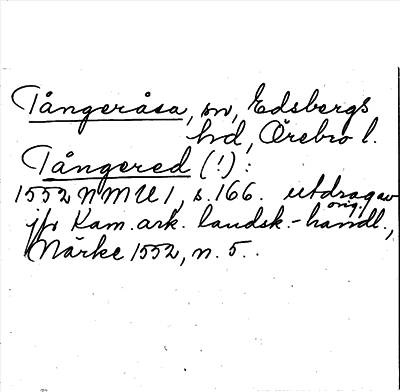 Tångeråsa, sn, Edsbergs
hd, Örebro l.
Tångered (!):
1552 NMU 1, s. 166. utdrag av
orig.
i Kam. ark. landsk.-handl.,
Närke 1552, n. 5.